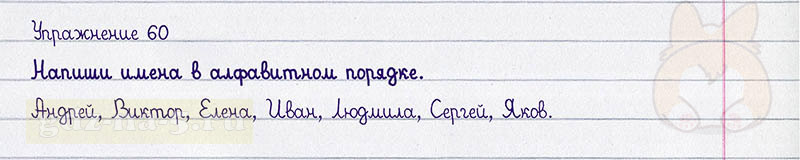 Упражнение 60
Напиши имена в алфавитном порядке.
Андрей, Виктор, Елена, Иван, Людмила, Сергей, Яков.